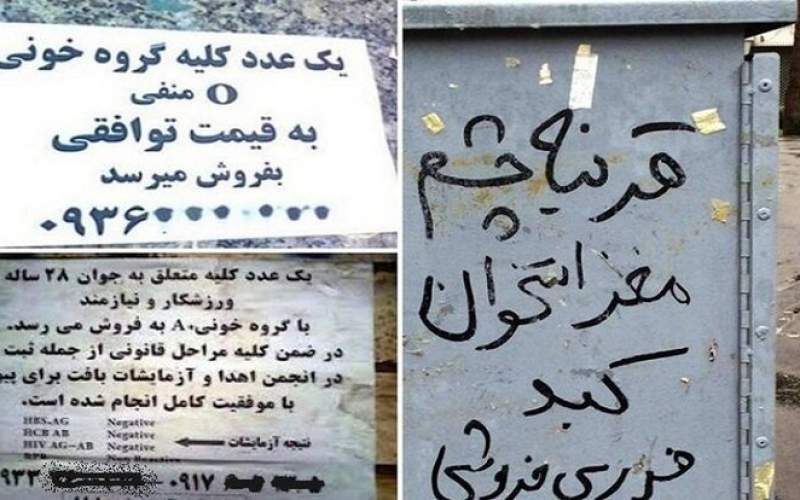 یک عدد کلیه گروه خونی
O منفی
به قیمت توافقی
بفروش میرسد
۰۹۳۶
یک عدد کلیه متعلق به جوان ۲۸ ساله
ورزشکار و نیازمند
با گروه خونی A+ به فروش می رسد.
در ضمن کلیه مراحل قانونی از جمله ثبت
در انجمن اهدا و آزمایشات بافت برای پیو
با موفقیت کامل انجام شده است.
HBS.AG Negative
HCB AB Negative
HIV AG-AB Negative
نتیجه آزمایشات
۰۹۱۷
قرنیه چشم
مغز استخوان
کبد
فوری فروشی